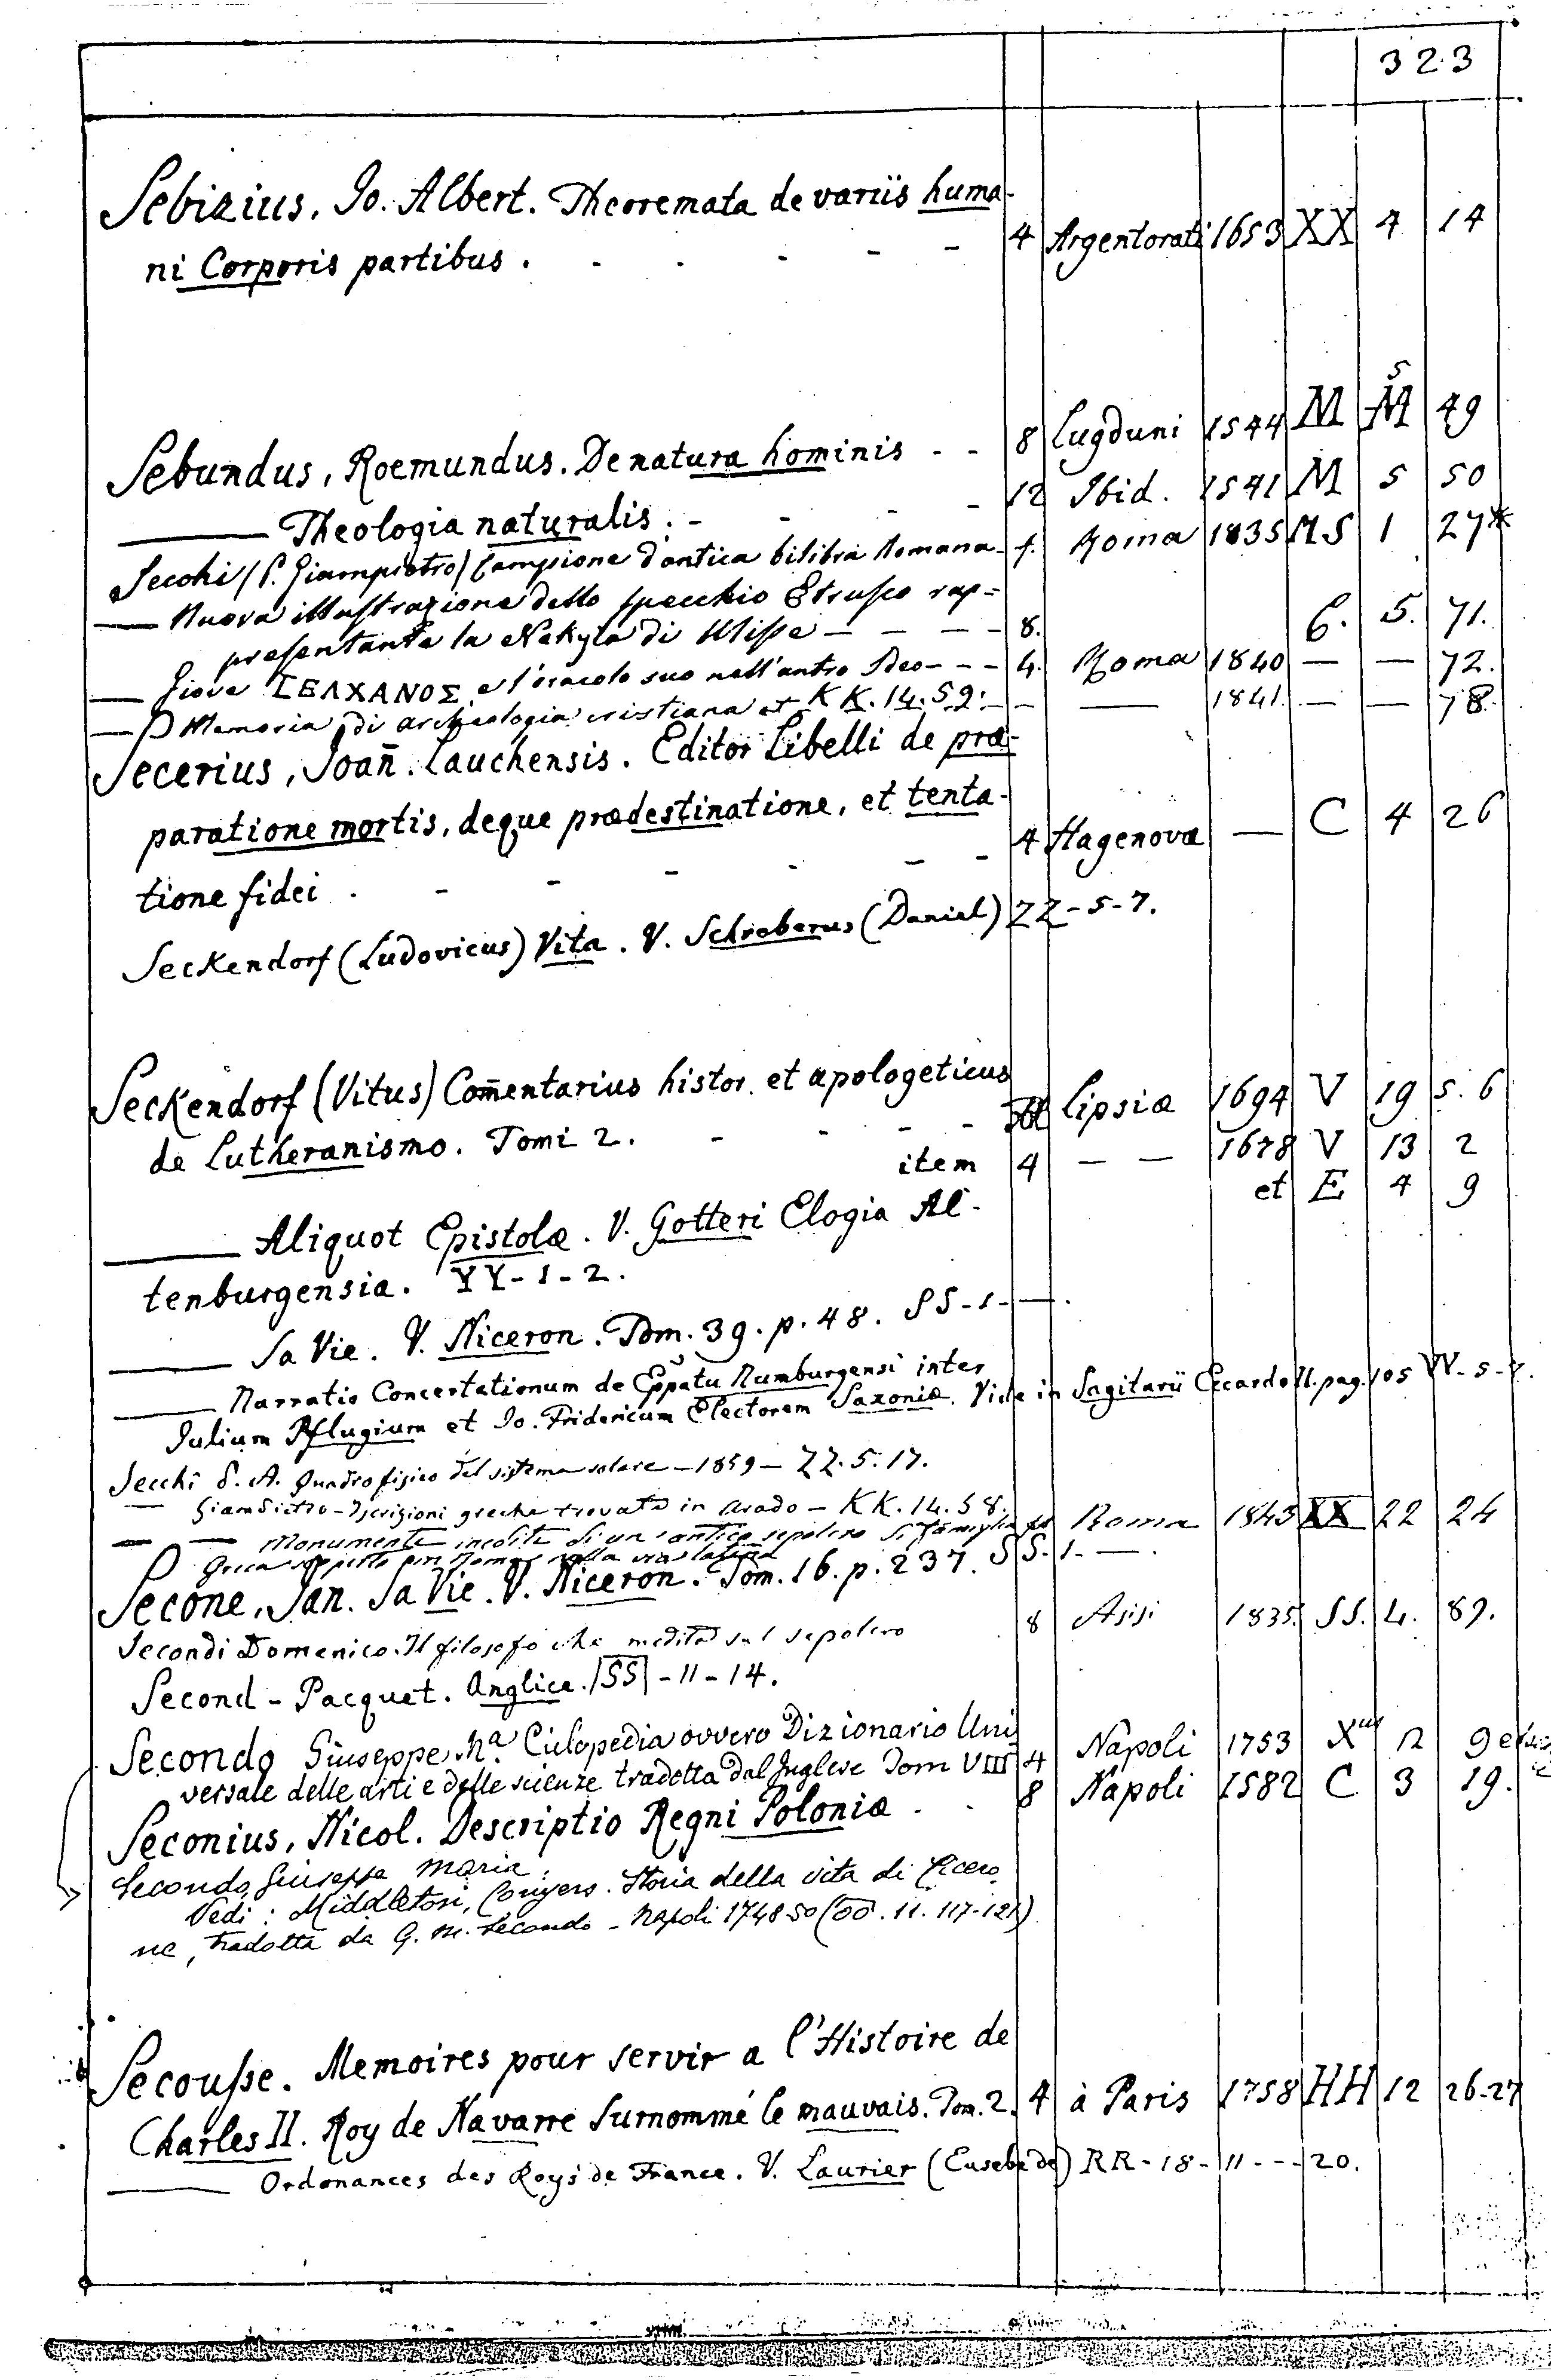 323
Sebizius, Jo. Albert. Theoremata de variis huma-
ni Corporis partibus. - - - - - 4 Argentorati 1653 XX 4 14
Sebundus, Roemundus. De natura hominis - - 8 Lugduni 1544 M M 5 49
—— Theologia naturalis. - - - - 12 Ibid. 1541 M 5 50
Secchi (P. Giampietro) Campione d'antica bilibra Romana - f. Roma 1835 MS 1 27*
—— Nuova illustrazione dello specchio Etrusco rap=
presentante la Nekyia di Ulisse - - - - 8. 6. 5. 71.
—— Giove ΣΕΛΧΑΝΟΣ e l'oracolo suo nell'antro Ideo - - - 4. Roma 1840 — — 72.
—— Memoria di archeologia cristiana et KK. 14. 59. - - — 1841. — — 78.
Secerius, Joañ. Lauchensis. Editor Libelli de præ-
paratione mortis, deque prædestinatione, et tenta-
tione fidei . - - - - - - 4 Hagenovæ — C 4 26
Seckendorf (Ludovicus) Vita. V. Schreberus (Daniel) ZZ-5-7.
Seckendorf (Vitus) Com̄entarius histor. et apologeticus
de Lutheranismo. Tomi 2. - - - - Lipsiæ 1694 V 19 5. 6
item 4 — — 1678 V 13 2
et E 4 9
—— Aliquot Epistolæ. V. Gotteri Elogia Al-
tenburgensia. YY-1-2.
—— Sa Vie. V. Niceron. Tom. 39. p. 48. SS-1-—.
—— Narratio Concertationum de Eppatu Numburgensi inter
Julium Pflugium et Jo. Fridericum Electorem Saxoniæ. Vide in Sagitarii pag. 105 VV-5-7.
Secchi P. A. Quadro fisico del sistema solare - 1859 - ZZ. 5. 17.
— GiamPietro - Iscrizioni greche trovate in Arado - KK. 14. 58.
— — Monumento inedito di un antico sepolcro di famiglia Roma 1843 XX 22 24
Greca scoperto in Roma nella via latina
Secone, Jan. Sa Vie. V. Niceron. Tom. 16. p. 237. SS. 1. —.
Secondi Domenico. Il filosofo che medita sul sepolcro 8 Asisi 1835. SS. 4. 89.
Second-Pacquet. Anglice. SS - 11 - 14.
Secondo Giuseppe Mª. Ciclopedia ovvero Dizionario Uni
versale delle arti e delle scienze tradotta dal Inglese Tom VIII 4 Napoli 1753 12 9
Seconius, Nicol. Descriptio Regni Poloniæ . . 8 Napoli 1582 C 3 19.
Secondo, Giuseppe Maria.
Vedi: Middleton, Conyers. Storia della vita di Cicero
ne, tradotta da G. M. Secondo - Napoli 1748-50 (OO. 11. 117-121)
Secousse. Memoires pour servir a l'Histoire de
Charles II. Roy de Navarre Surnommé le mauvais. Tom. 2. 4 à Paris 1758 HH 12 26-27
—— Ordonances des Roys de France. V. Laurier (Eusebe de) RR-18-11---20.